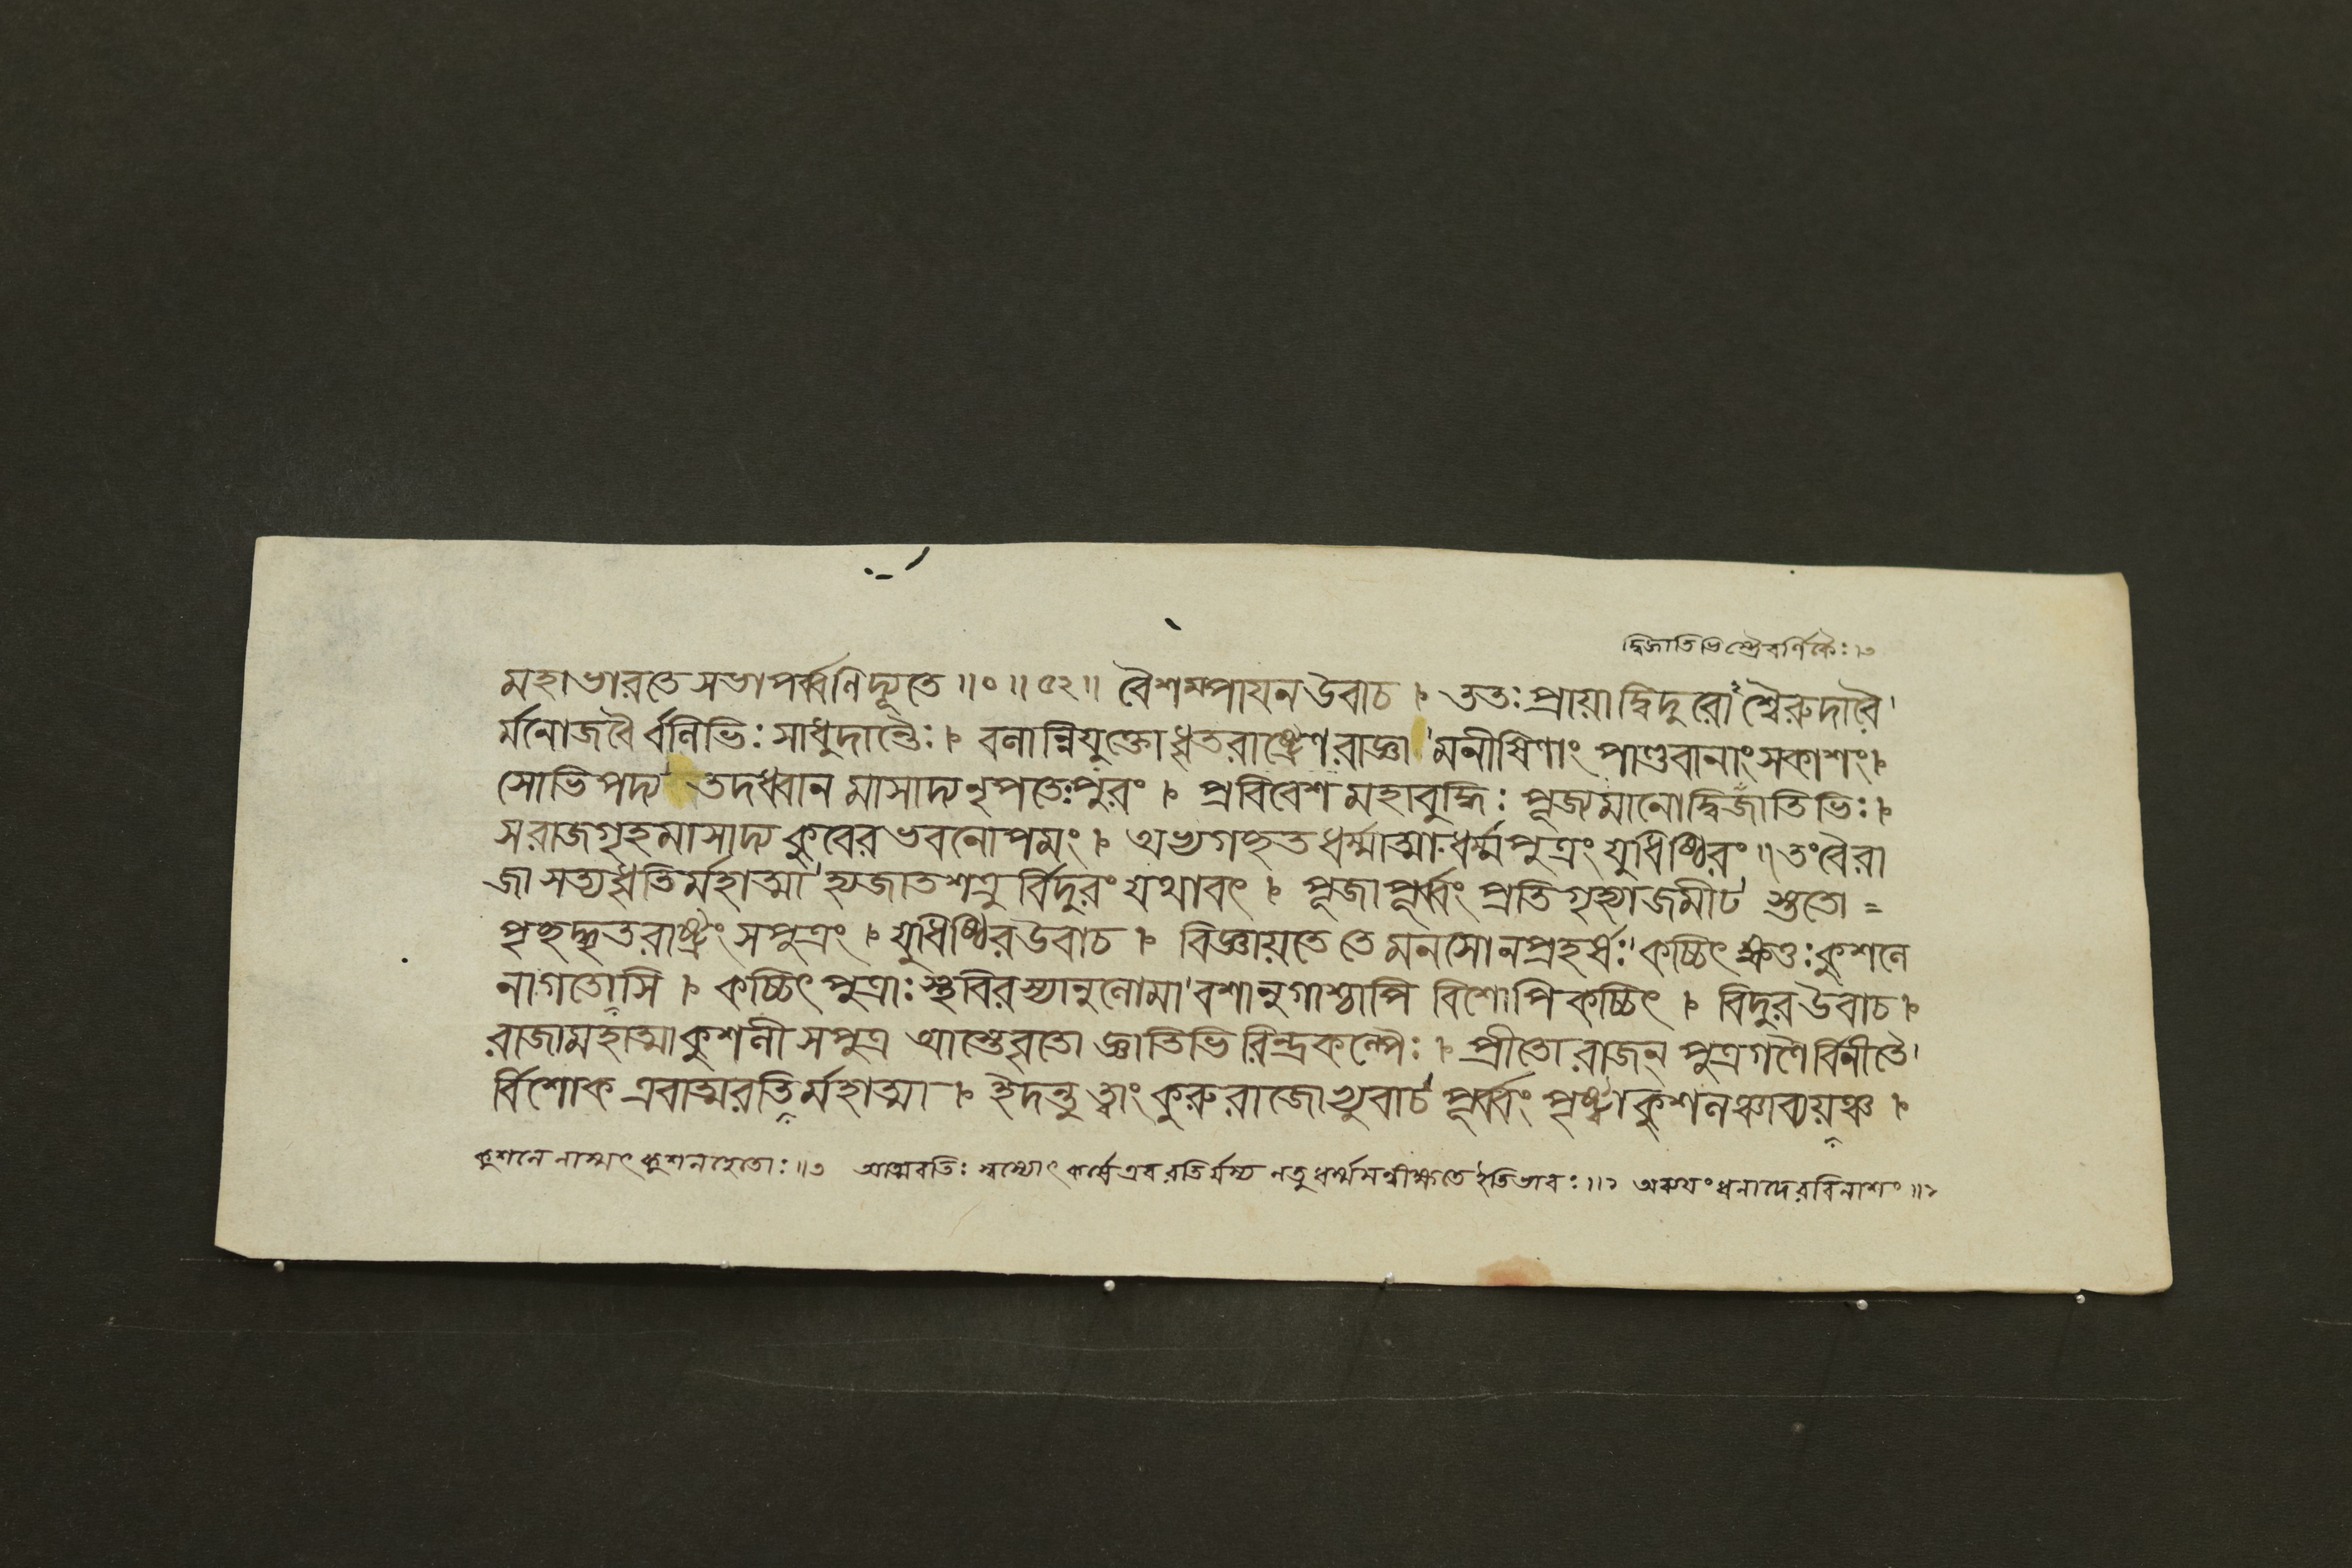 দ্বিজাতিভিস্ত্রৈবর্ণিকৈঃ।৩
মহাভারতে সভাপর্ব্বণিদ্যূতে॥০॥৫২॥ বৈশম্পায়ন উবাচ। ততঃ প্রায়াদ্বিদুরোঽশ্বৈরুদারৈ'
র্ম্মনোজবৈ র্ব্বলিভিঃ সাধুদান্তৈঃ। বলান্নিযুক্তো ধৃতরাষ্ট্রেণ রাজ্ঞা' মনীষিণাং পাণ্ডবানাং সকাশং।
সোভিপদ্য তদধ্বান মাসাদ্য নৃপতেঃপুরং। প্রবিবেশ মহাবুদ্ধিঃ পূজ্যমানোদ্বিজাতিভিঃ।
স রাজগৃহমাসাদ্য কুবের ভবনোপমং। অভ্যগচ্ছত ধর্ম্মাত্মা ধর্ম্মপুত্রং যুধিষ্ঠিরং॥তংবৈরা
জা সত্যধৃতির্মহাত্মা' হ্যজাতশত্রু র্বিদুরং যথাবৎ। পূজাপূর্ব্বং প্রতিগৃহ্যাজমীঢ' স্ততো =
পৃচ্ছদ্ধৃতরাষ্ট্রং সপুত্রং। যুধিষ্ঠির উবাচ। বিজ্ঞায়তে তে মনসোনপ্রহর্ষঃ' কচ্চিৎ ক্ষত্তঃকুশলে
নাগতোসি। কচ্চিৎ পুত্রাঃ স্থবিরস্যানুলোমা' বশানুগাশ্চাপি বিশোপি কচ্চিৎ। বিদুর উবাচ।
রাজামহাত্মাকুশলী সপুত্র আস্তেবৃতো জ্ঞাতিভি রিন্দ্রকল্পৈঃ। প্রীতো রাজন্ পুত্রগণৈ র্বিনীতৈ'
র্বিশোক এবাত্মরতি র্মহাত্মা। ইদন্তু ত্বাং কুরুরাজোভ্যুবাচ' পূর্ব্বং পৃষ্ট্বা কুশলঞ্চাব্যয়ঞ্চ।
কুশলে নাস্মৎ কুশলহেতোঃ॥৩ আত্মরতিঃ স্বস্যোৎকর্ষে এব রতির্যস্য নতু ধর্ম্মমন্বীক্ষতে ইতিভাবঃ॥২ অব্যয়ং ধনাদেরবিনাশং॥২